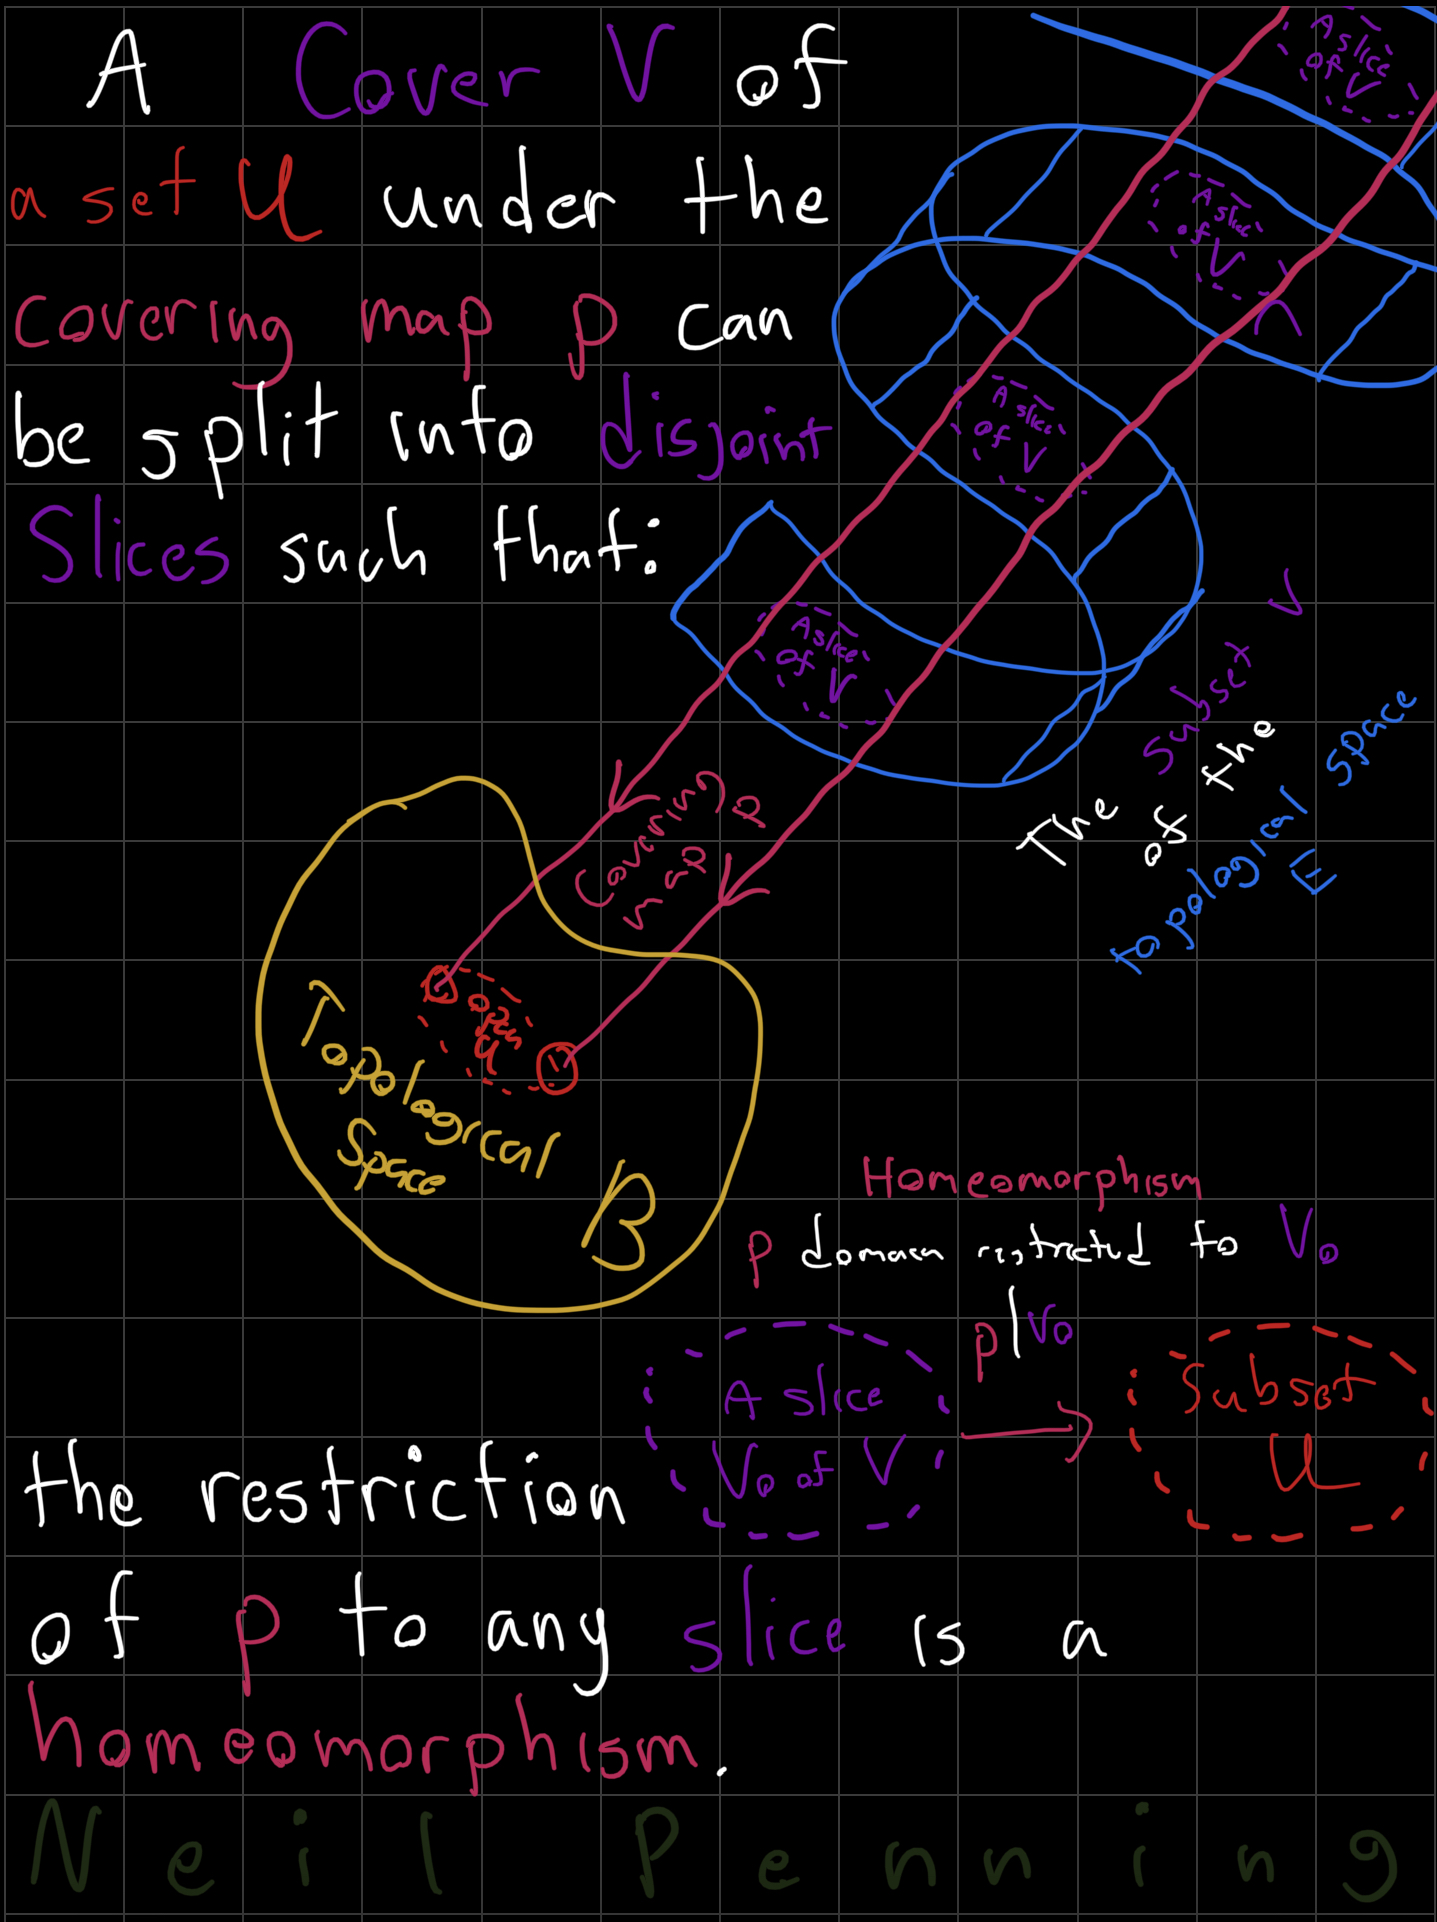 A Cover V of
a set U under the
covering map p can
be split into disjoint
Slices such that:
A slice
of V
A slice
of V
A slice
of V
A slice
of V
The subset V
of the
topological space
E
Covering
map p
open
U
Topological
Space
B
Homeomorphism
p domain restricted to V₀
p|V₀
A slice
V₀ of V
Subset
U
the restriction
of p to any slice is a
homeomorphism.
Neil Penning